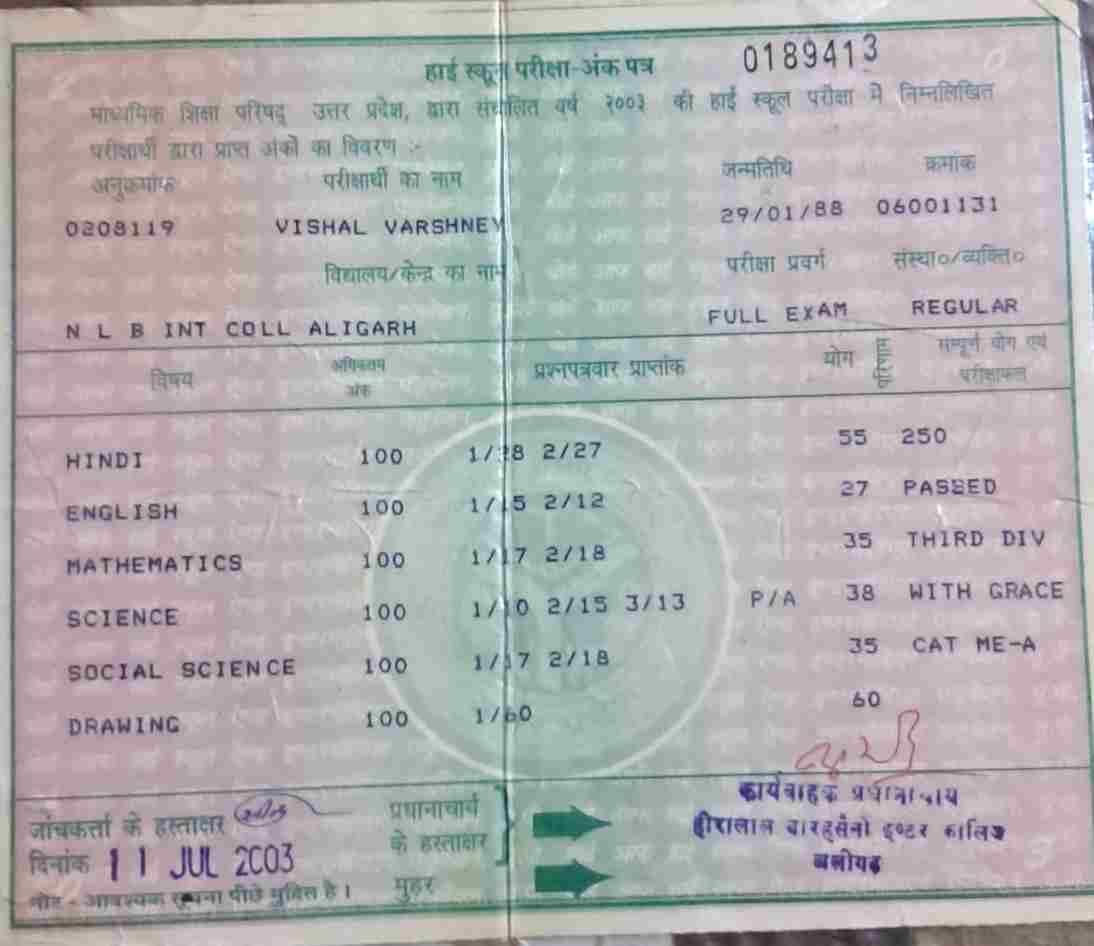 हाई स्कूल परीक्षा-अंक पत्र 0189413
माध्यमिक शिक्षा परिषद् उत्तर प्रदेश, द्वारा संचालित वर्ष २००३ की हाई स्कूल परीक्षा में निम्नलिखित
परीक्षार्थी द्वारा प्राप्त अंकों का विवरण :-
अनुक्रमांक परीक्षार्थी का नाम जन्मतिथि क्रमांक
0208119 VISHAL VARSHNEY 29/01/88 06001131
विद्यालय/केन्द्र का नाम परीक्षा प्रवर्ग संस्था०/व्यक्ति०
N L B INT COLL ALIGARH FULL EXAM REGULAR
विषय अधिकतम अंक प्रश्नपत्रवार प्राप्तांक योग परिणाम सम्पूर्ण योग एवं परीक्षाफल
HINDI 100 1/28 2/27 55 250
ENGLISH 100 1/15 2/12 27 PASSED
MATHEMATICS 100 1/17 2/18 35 THIRD DIV
SCIENCE 100 1/10 2/15 3/13 P/A 38 WITH GRACE
SOCIAL SCIENCE 100 1/17 2/18 35 CAT ME-A
DRAWING 100 1/60 60
जांचकर्त्ता के हस्ताक्षर प्रधानाचार्य के हस्ताक्षर
कार्यवाहक प्रधानाचार्य
हीरालाल बारहसैनी इण्टर कालिज
अलीगढ़
दिनांक 11 JUL 2003 मुहर
नोट - आवश्यक सूचना पीछे मुद्रित है।